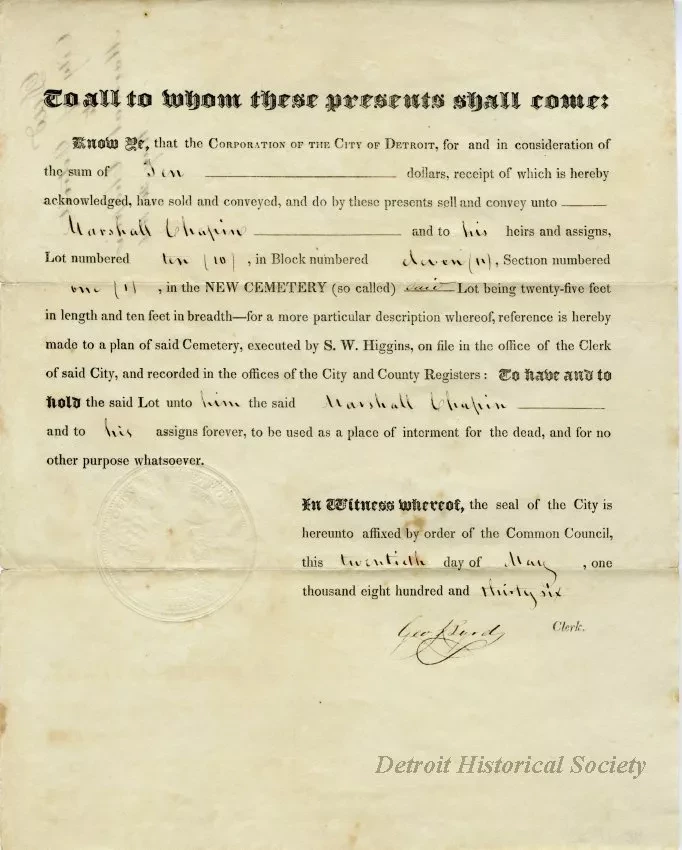 To all to whom these presents shall come:
Know Ye, that the Corporation of the City of Detroit, for and in consideration of
the sum of Ten dollars, receipt of which is hereby
acknowledged, have sold and conveyed, and do by these presents sell and convey unto
Marshall Chapin and to his heirs and assigns,
Lot numbered ten (10), in Block numbered eleven (11), Section numbered
one (1), in the NEW CEMETERY (so called) said Lot being twenty-five feet
in length and ten feet in breadth—for a more particular description whereof, reference is hereby
made to a plan of said Cemetery, executed by S. W. Higgins, on file in the office of the Clerk
of said City, and recorded in the offices of the City and County Registers: To have and to
hold the said Lot unto him the said Marshall Chapin
and to his assigns forever, to be used as a place of interment for the dead, and for no
other purpose whatsoever.
In Witness whereof, the seal of the City is
hereunto affixed by order of the Common Council,
this twentieth day of May, one
thousand eight hundred and thirty six
Geo Byrd Clerk.
Detroit Historical Society